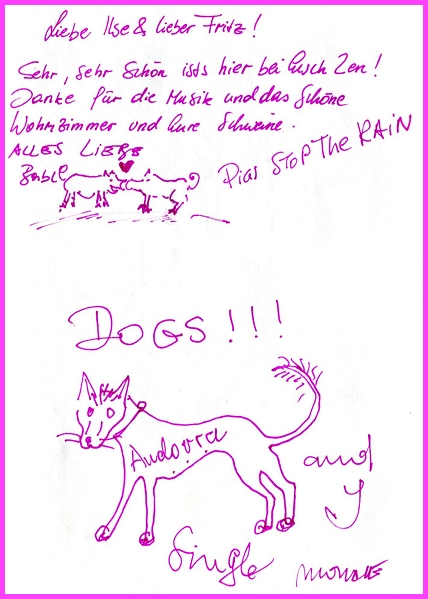 Liebe Ilse & lieber Fritz!
Sehr, sehr schön ists hier bei Euch Zen!
Danke für die Musik und das schöne
Wohnzimmer und Eure Schweine.
ALLES LIEBE
STOP THE RAIN
DOGS!!!
Andorra
and
Y
Single